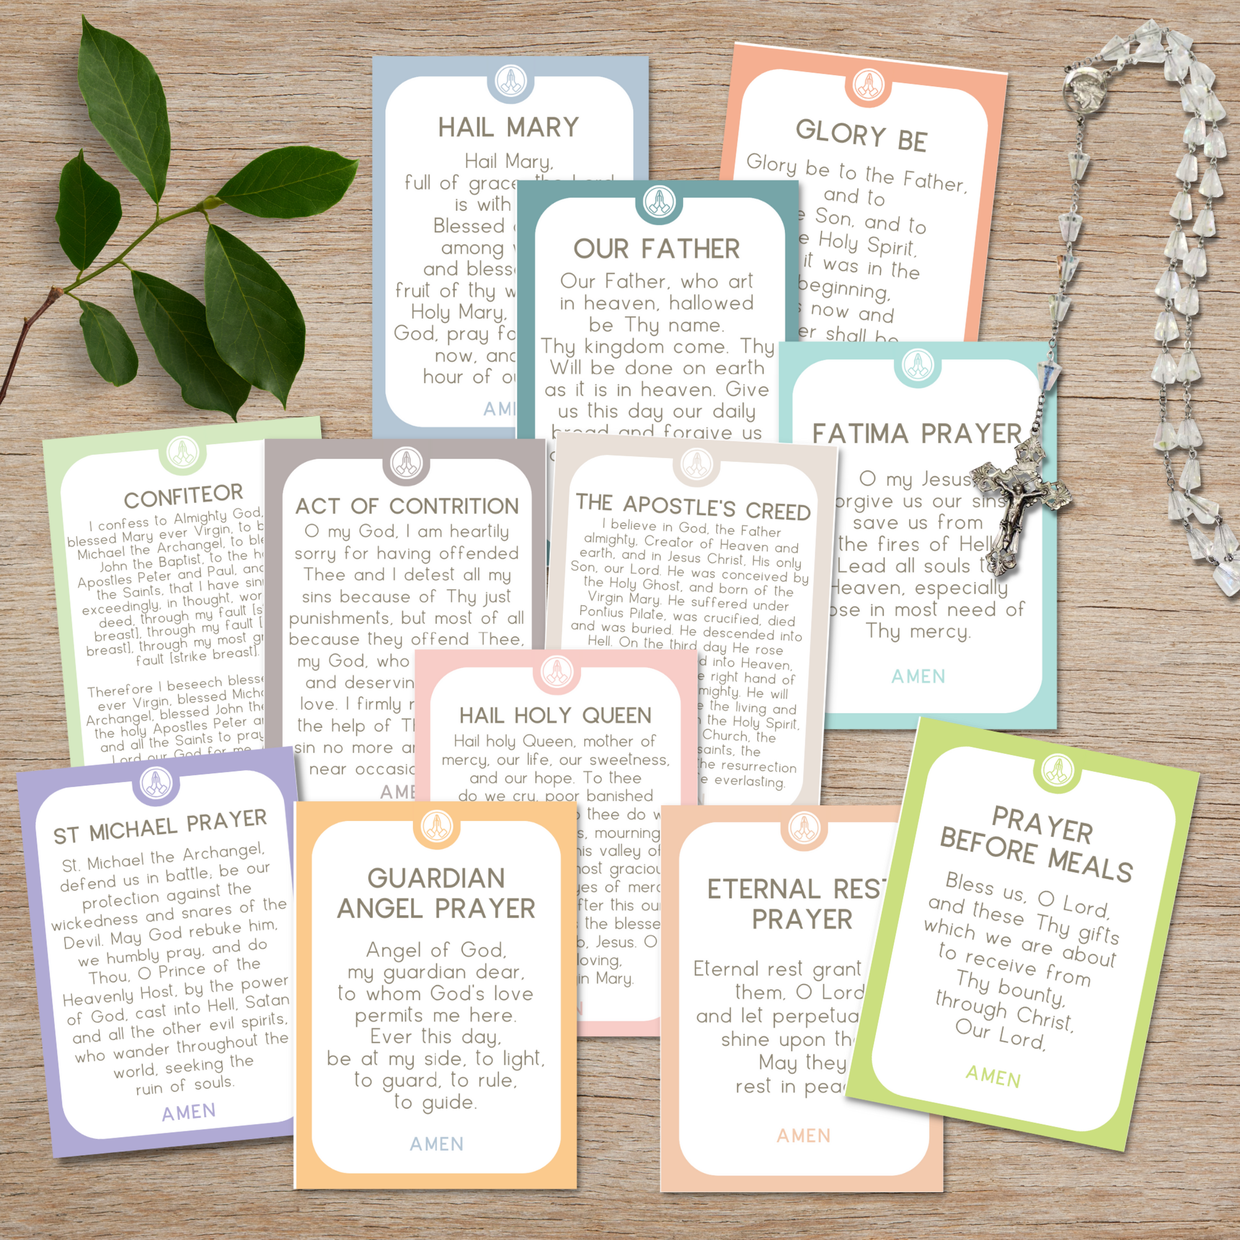 HAIL MARY
Hail Mary,
full of grace, the Lord
is with
Blessed
among
and bless
fruit of thy
Holy Mary,
God, pray
now, and
hour of
GLORY BE
Glory be to the Father,
and to
Son, and to
Holy Spirit,
it was in the
beginning,
now and
shall be
OUR FATHER
Our Father, who art
in heaven, hallowed
be Thy name.
Thy kingdom come. Thy
Will be done on earth
as it is in heaven. Give
us this day our daily
bread and forgive us
FATIMA PRAYER
O my Jesus
forgive us our sins
save us from
the fires of Hell
Lead all souls to
Heaven, especially
in most need of
Thy mercy.
AMEN
CONFITEOR
I confess to Almighty God,
blessed Mary ever Virgin, to
Michael the Archangel, to
John the Baptist, to the
Apostles Peter and Paul, and
the Saints, that I have
exceedingly, in thought,
deed, through my fault
breast], through my fault
breast], through my most
fault [strike breast].
Therefore I beseech
ever Virgin, blessed
Archangel, blessed John
the holy Apostles Peter
and all the Saints to pray
Lord our God for me
ACT OF CONTRITION
O my God, I am heartily
sorry for having offended
Thee and I detest all my
sins because of Thy just
punishments, but most of all
because they offend Thee,
my God, who
and
love. I firmly
the help of
sin no more
near
THE APOSTLE'S CREED
I believe in God, the Father
almighty, Creator of Heaven and
earth, and in Jesus Christ, His only
Son, our Lord. He was conceived by
the Holy Ghost, and born of the
Virgin Mary. He suffered under
Pontius Pilate, was crucified, died
and was buried. He descended into
Hell. On the third day He rose
into Heaven,
right hand of
He will
the living and
the Holy Spirit,
Church, the
saints, the
resurrection
everlasting.
HAIL HOLY QUEEN
Hail holy Queen, mother of
mercy, our life, our sweetness,
and our hope. To thee
do we cry, poor banished
thee do
mourning
this valley of
most
eyes of
after this
the
Jesus. O
loving,
Mary.
ST MICHAEL PRAYER
St. Michael the Archangel,
defend us in battle, be our
protection against the
wickedness and snares of the
Devil. May God rebuke him,
we humbly pray, and do
Thou, O Prince of the
Heavenly Host, by the power
of God, cast into Hell, Satan
and all the other evil spirits,
who wander throughout the
world, seeking the
ruin of souls.
AMEN
GUARDIAN
ANGEL PRAYER
Angel of God,
my guardian dear,
to whom God's love
permits me here.
Ever this day,
be at my side, to light,
to guard, to rule,
to guide.
AMEN
ETERNAL REST
PRAYER
Eternal rest grant
them, O Lord
and let
shine upon
May they
rest in
AMEN
PRAYER
BEFORE MEALS
Bless us, O Lord,
and these Thy gifts
which we are about
to receive from
Thy bounty,
through Christ,
Our Lord,
AMEN